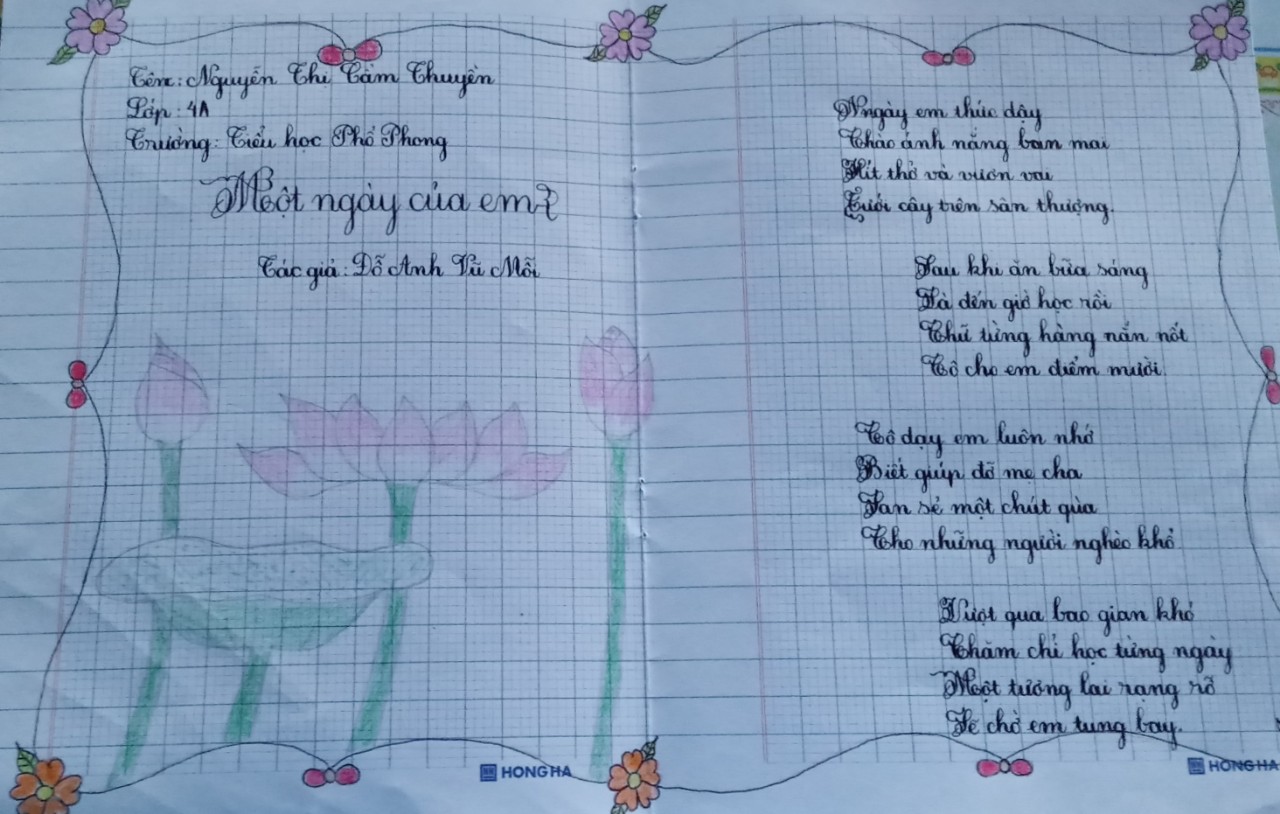 Tên: Nguyễn Thi Cầm Thuyền
Lớp: 4A
Trường: Tiểu học Phổ Phong
Một ngày của em?
Tác giả: Đỗ Anh Vũ Mỗi
Nngày em thức dậy
Chào ánh nắng ban mai
Hít thở và vươn vai
Tưới cây trên sàn thượng.
Sau khi ăn bữa sáng
Là đến giờ học rồi
Chữ từng hàng nắn nót
Cô cho em điểm mười.
Cô dạy em luôn nhớ
Biết giúp đỡ mẹ cha
San sẻ một chút qùa
Cho những người nghèo khổ
Vượt qua bao gian khó
Chăm chỉ học từng ngày
Một tương lai rạng rỡ
Sẽ chờ em tung bay.
HONG HA
HONG HA